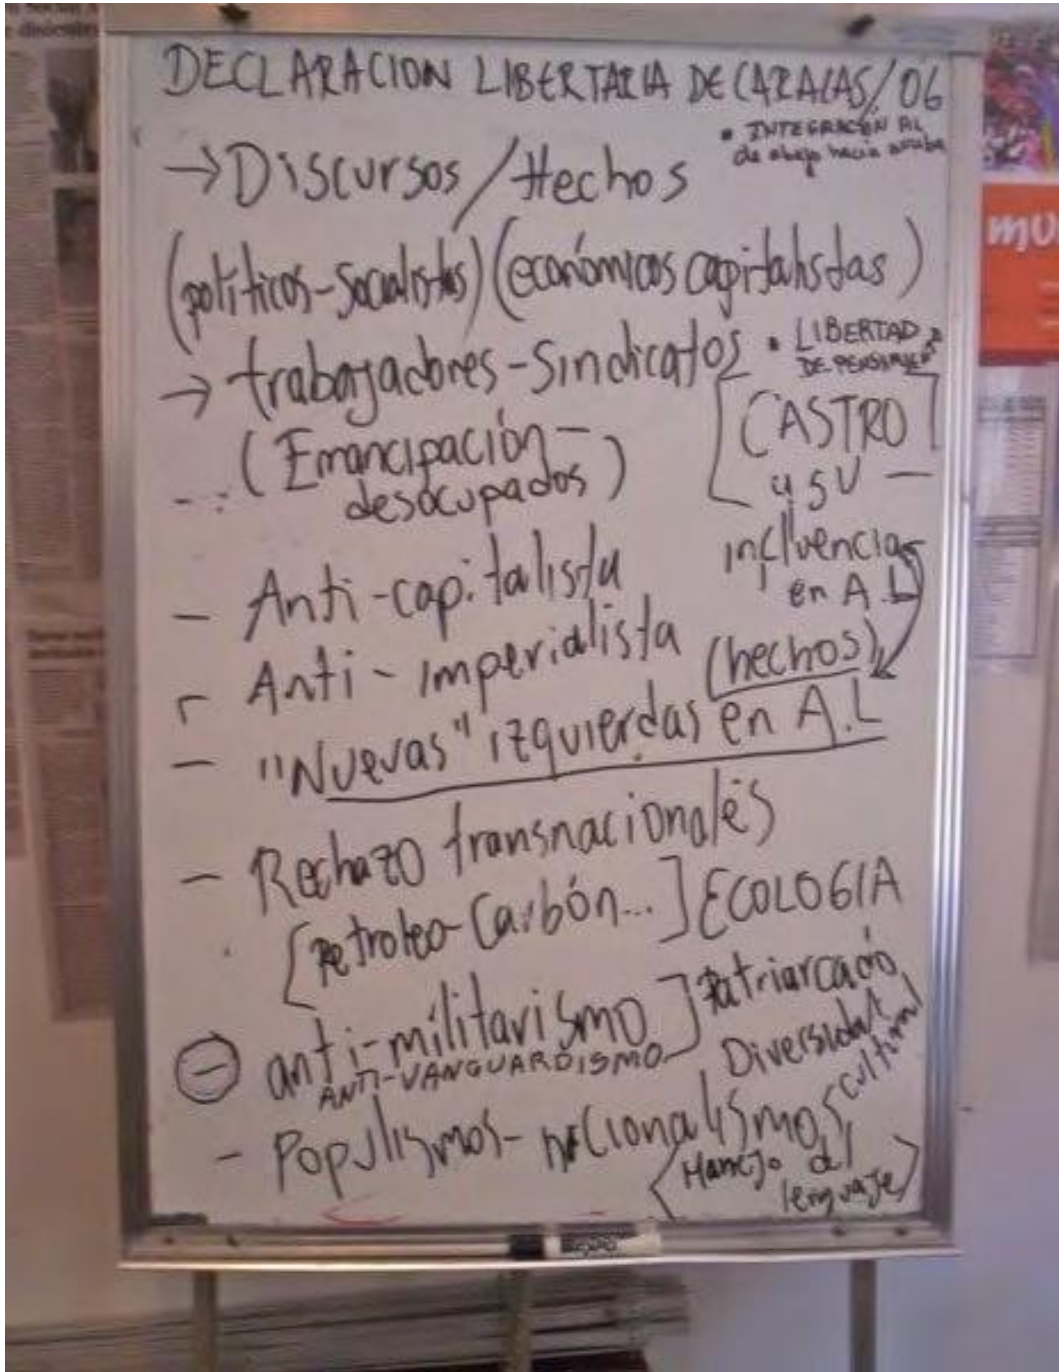 DECLARACION LIBERTARIA DE CARACAS/06
• INTEGRACIÓN AL
de abajo hacia arriba
→ Discursos / Hechos
(políticos-socialistas) (económicos capitalistas)
→ trabajadores-sindicatos
• LIBERTAD
(Emancipación-
desocupados)
[CASTRO]
y su —
influencia
en A.L
- Anti-capitalista
- Anti-imperialista
(hechos)
- "Nuevas" izquierdas en A.L
- Rechazo transnacionales
[Petroleo-Carbón...] ECOLOGIA
- anti-militarismo]
ANTI-VANGUARDISMO
Patriarcado
Diversidad
cultural
- Populismos-nacionalismos
(Manejo del
lenguaje)
mu
EXPO